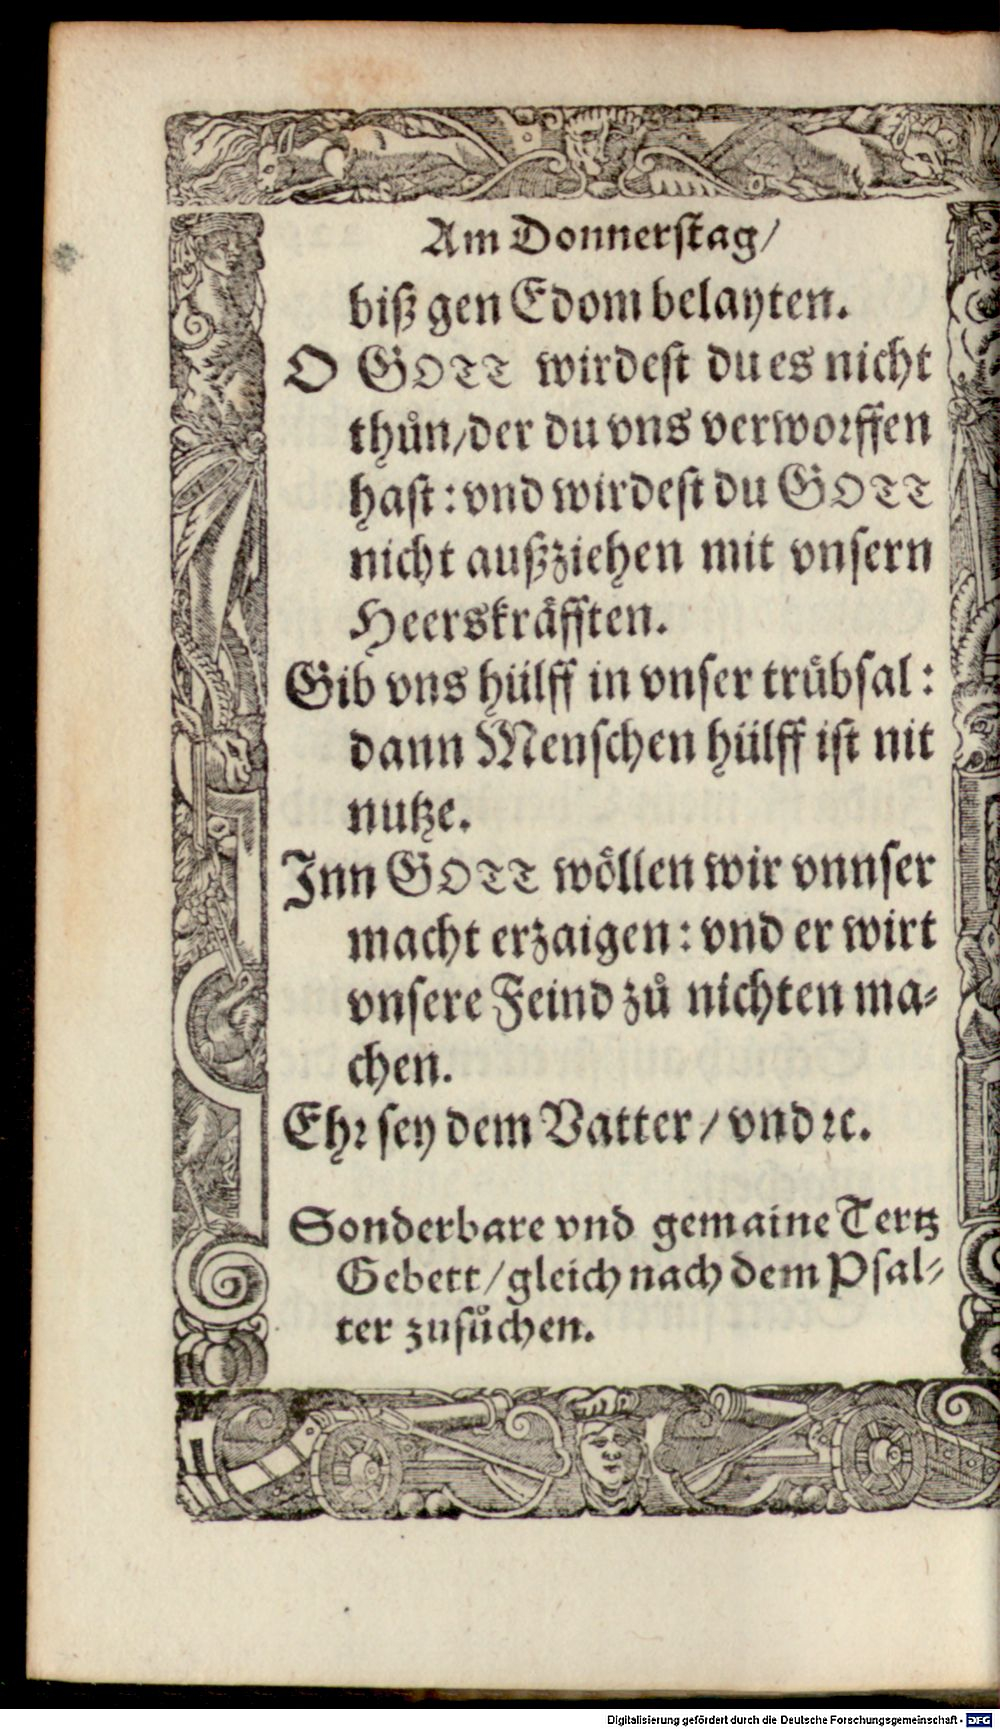 Am Donnerstag/
biß gen Edom belayten.
O GOTT wirdest du es nicht
thůn/der du vns verworffen
hast: vnd wirdest du GOTT
nicht außziehen mit vnsern
Heerskräfften.
Gib vns hülff in vnser trübsal:
dann Menschen hülff ist nit
nutze.
Inn GOTT wöllen wir vnnser
macht erzaigen: vnd er wirt
vnsere Feind zů nichten ma-
chen.
Ehr sey dem Vatter / vnd ꝛc.
Sonderbare vnd gemaine Tertz
Gebett/gleich nach dem Psal-
ter zusůchen.
Digitalisierung gefördert durch die Deutsche Forschungsgemeinschaft - DFG